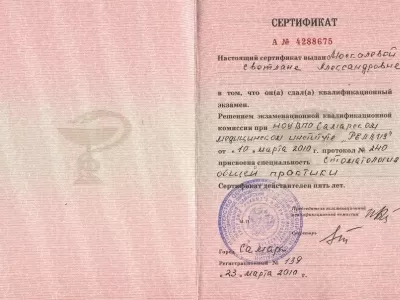 СЕРТИФИКАТ
А № 4288675
Настоящий сертификат выдан Москалевой
Светлане Александровне
в том, что он(а) сдал(а) квалификационный
экзамен.
Решением экзаменационной квалификационной
комиссии при НОУ ВПО Самарском
медицинском институте "РЕАВИЗ"
от "10" марта 2010 г. протокол № 240
присвоена специальность Стоматология
общей практики
Сертификат действителен пять лет.
Председатель экзаменационной
квалификационной комиссии
Секретарь
М.П.
Город Самара
Регистрационный № 138
"23" марта 2010 г.